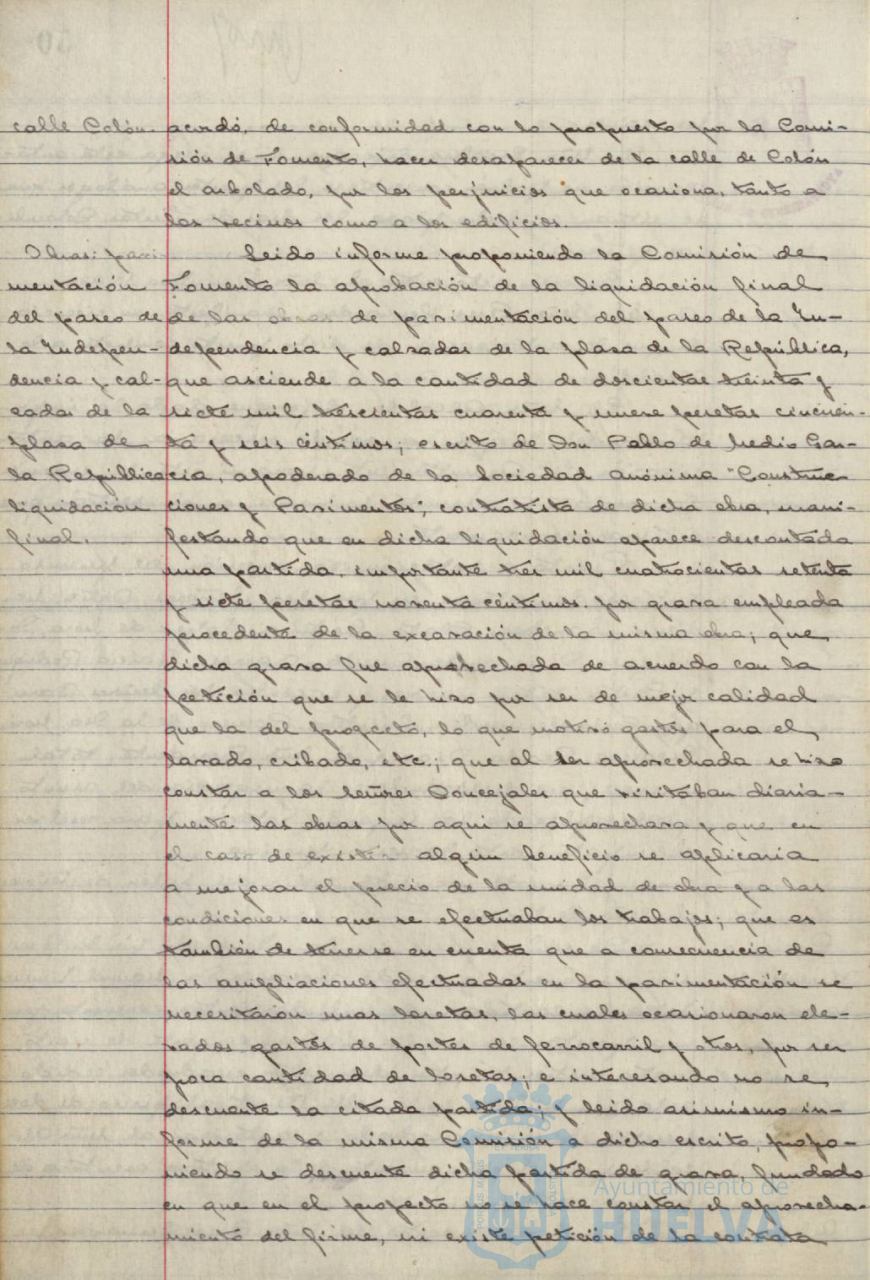 calle Colón. acordó, de conformidad con lo propuesto por la Comi-
sión de Fomento, hacer desaparecer de la calle de Colón
el arbolado, por los perjuicios que ocasiona, tanto a
los vecinos como a los edificios.
Obras: pavi- Leido informe proponiendo la Comisión de
mentación Fomento la aprobación de la liquidación final
del paseo de de las obras de pavimentación del paseo de la In-
la Indepen- dependencia y calzadas de la plaza de la República,
dencia y cal- que asciende a la cantidad de doscientas treinta y
zadas de la siete mil trescientas cuarenta y nueve pesetas cincuen-
plaza de ta y seis céntimos; escrito de Don Pablo de Medio Gar-
la República cia, apoderado de la Sociedad anónima "Construc-
liquidación ciones y Pavimentos", contratista de dicha obra, mani-
final. festando que en dicha liquidación aparece descontada
una partida, importante tres mil cuatrocientas setenta
y siete pesetas noventa céntimos, por grava empleada
procedente de la excavación de la misma obra; que
dicha grava fue aprovechada de acuerdo con la
petición que se le hizo por ser de mejor calidad
que la del proyecto, lo que motivó gastos para el
lavado, cribado, etc.; que al ser aprovechada se hizo
constar a los Señores Concejales que visitaban diaria-
mente las obras por aqui se aprovechara y que en
el caso de existir algún beneficio se aplicaria
a mejorar el precio de la unidad de obra y a las
condiciones en que se efectuaban los trabajos; que es
también de tenerse en cuenta que a consecuencia de
las ampliaciones efectuadas en la pavimentación se
necesitaron unas losetas, las cuales ocasionaron ele-
vados gastos de portes de ferrocarril y otros, por ser
poca cantidad de losetas; e interesando no se
descuente la citada partida; y leido asimismo in-
forme de la misma Comisión a dicho escrito, propo-
niendo se descuente dicha partida de grava, fundado
en que en el proyecto no se hace constar el aprovecha-
miento del firme, ni existe petición de la contrata
Ayuntamiento de
HUELVA